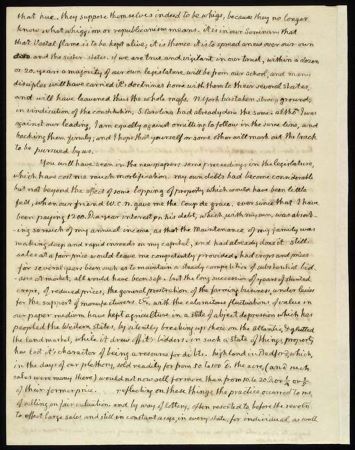 that hue. they suppose themselves indeed to be whigs, because they no longer
know what whigism or republicanism means. it is in our Seminary that
that Vestal flame is to be kept alive; it is thence it is to spread anew over our own
and the sister states. if we are true and vigilant in our trust, within a dozen
or 20. years a majority of our own legislature will be from our school, and many
disciples will have carried it's doctrines home with them to their several states,
and will have leavened thus the whole mass. N. York has taken strong ground
in vindication of the constitution; S. Carolina had already done the same. altho' I was
against our leading, I am equally against omitting to follow in the same line, and
backing them firmly; and I hope that yourself or some other will mark out the track
to be pursued by us.
You will have seen in the newspapers some proceedings in the legislature,
which have cost me much mortification. my own debts had become considerable
but not beyond the effect of some lopping of property, which would have been little
felt, when our friend W.C.N. gave me the coup de grace. ever since that I have
been paying 1200. D. a year interest on his debt, which, with my own, was absorb-
ing so much of my annual income, as that the Maintenance of my family was
making deep and rapid inroads on my capital, and had already done it. still
sales at a fair price would leave me competently provided. had crops and prices
for several years been such as to maintain a steady competition of substantial bid-
ders at market, all would have been safe. but the long succession of years of stunted
crops, of reduced prices, the general prostration of the farming business, under levies
for the support of manufacturers Etc. with the calamitous fluctuations of value in
our paper medium have kept agriculture in a state of abject depression which has
peopled the Western states, by silently breaking up those on the Atlantic, & glutted
the land market, while it drew off it's bidders. in such a state of things, property
has lost it's character of being a resource for debts. highland in Bedford, which,
in the days of our plethory, sold readily for from 50 to 100 D. the acre, (and such
sales were many there) would not now sell for more than from 10. to 20. D. or 1/4 or 1/5
of their former price. reflecting on these things, the practice occurred to me,
of selling on fair valuation and by way of lottery, often resorted to before the revoln
to effect large sales and still in constant usage in every state, for individual as well